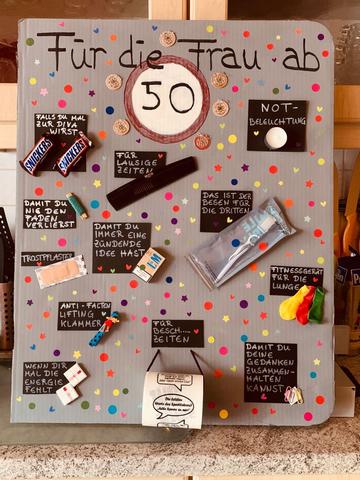 Für die Frau ab
50
NOT-
BELEUCHTUNG
FALLS DU MAL
ZUR DIVA
WIRST
SNICKERS
SNICKERS
FÜR
LAUSIGE
ZEITEN
DAMIT DU
NIE DEN
FADEN
VERLIERST
DAS IST DER
BESEN FÜR
DIE DRITTEN
DAMIT DU
IMMER EINE
ZÜNDENDE
IDEE HAST
TROSTPFLASTER
FITNESSGERÄT
FÜR DIE
LUNGE
ANTI-FALTEN
LIFTING
KLAMMER
FÜR
BESCH....
ZEITEN
DAMIT DU
DEINE
GEDANKEN
ZUSAMMEN-
HALTEN
KANNST
WENN DIR
MAL DIE
ENERGIE
FEHLT